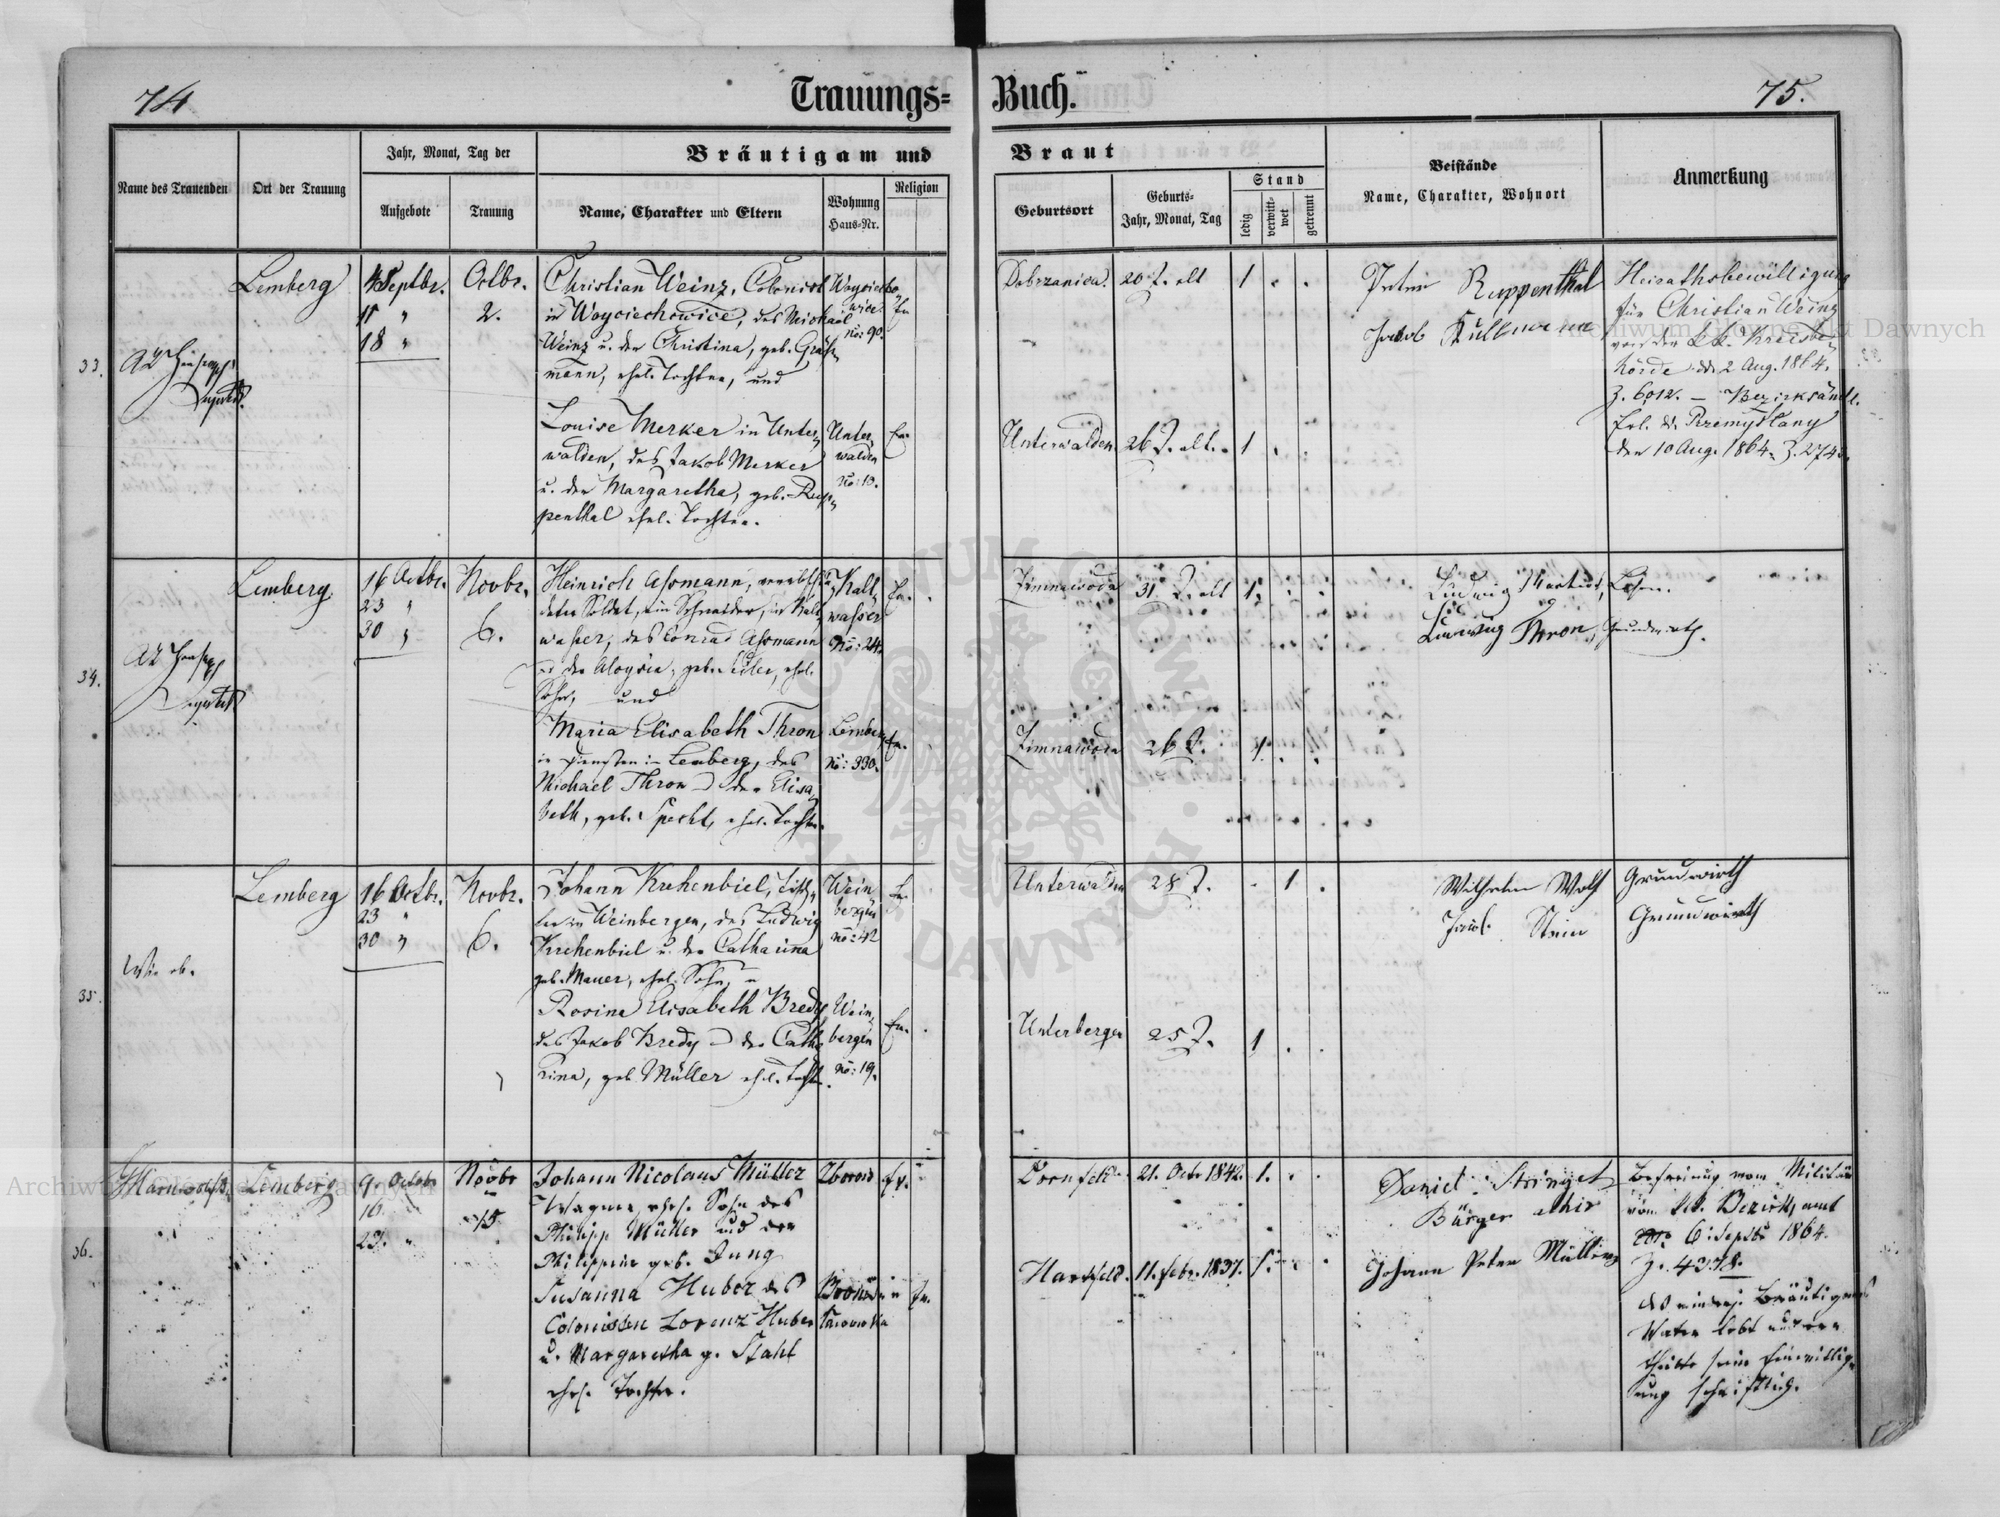 74
Trauungs=Buch.
75.
Name des Trauenden
Ort der Trauung
Jahr, Monat, Tag der
Aufgebote
Trauung
Bräutigam und Braut
Name, Charakter und Eltern
Wohnung
Haus-Nr.
Religion
Geburtsort
Geburts-
Jahr, Monat, Tag
Stand
ledig
verwitt-
wet
getrennt
Beistände
Name, Charakter, Wohnort
Anmerkung
33.
Lemberg
4 Septbr.
11 "
18 "
Octbr.
2.
Christian Weinz, Colonist
in Woyciechowice, des Michael
Weinz u. der Christina, geb. Graß-
mann, ehel. Tochter, und
Woyciecho
wice
No: 90.
Ev
Dobrzanica.
20 J. alt
1 . .
Peter Ruppenthal
Jakob Kullmann
Heirathsbewilligung
für Christian Weinz
von der k.k. Kreisbe-
hörde dd 2 Aug. 1864.
Z. 6012. — Bezirksamtl.
Erl. dd. Przemyślany
den 10 Aug. 1864. Z. 274
Louise Merker in Unter-
walden, des Jakob Merker
u. der Margaretha, geb. Rup-
penthal ehel. Tochter.
Unter-
walden
No: 10.
Ev.
Unterwalden
26 J. alt.
1 . .
34.
Lemberg
16 Octbr.
23 "
30 "
Novbr.
6.
Heinrich Assmann,
Soldat, ein Schneider, in Kalt-
wasser, des Conrad Assmann
u der Aloysia, geb. ehel.
Sohn, und
Kalt-
wasser
No: 24.
Ev.
Zimnawoda
31 J. alt
1.
Ludwig
Ludwig Thron, Grundwirth.
Maria Elisabeth Thron
in Diensten in Lemberg, des
Michael Thron u der Elisa-
beth, geb. Specht, ehel. Tochter.
Lemberg
No: 330.
Ev.
Zimnawoda
26 J.
1. . .
35.
Wie ob.
Lemberg
16 Octbr.
23 "
30 "
Novbr.
6.
Johann Krehenbiel, Tisch-
ler in Weinbergen, des Ludwig
Krehenbiel u. der Catharina
geb. Mauer, ehel. Sohn, u
Wein
bergen
No: 42
Ev.
Unterwalden
28 J.
. 1 .
Wilhelm Wolf Grundwirth
Jakob Stein Grundwirth
Rosina Elisabeth Bredy
des Jakob Bredy u der Catha
rina, geb. Müller ehel. Tochter.
Wein-
bergen
No: 19.
Ev.
Unterbergen
25 J.
1 . .
36.
Lemberg
9. Octobr
16. "
23. "
Novbr
15
Johann Nicolaus Müller
Wagner, ehel. Sohn des
Philipp Müller und der
Philippine geb. Jung
Zborow
Ev.
Dornfeld
21. Octr 1842.
1. . .
Daniel
Bürger
Johann Peter Müller
Befreiung vom Militär
vom k.k. Bezirksamt
6. Septbr 1864.
Z. 4378.
Des minderj. Bräutigams
Vater lebt und er-
theilte seine Einwillig-
ung schriftlich.
Susanna Huber des
Colonisten Lorenz Huber
u. Margaretha g. Stahl
ehel. Tochter.
Ev.
Hartfeld.
11. Febr. 1837.
1. . .
Archiwum Główne Akt Dawnych
Archiwum Główne Akt Dawnych
ARCHIWUM GŁÓWNE AKT DAWNYCH